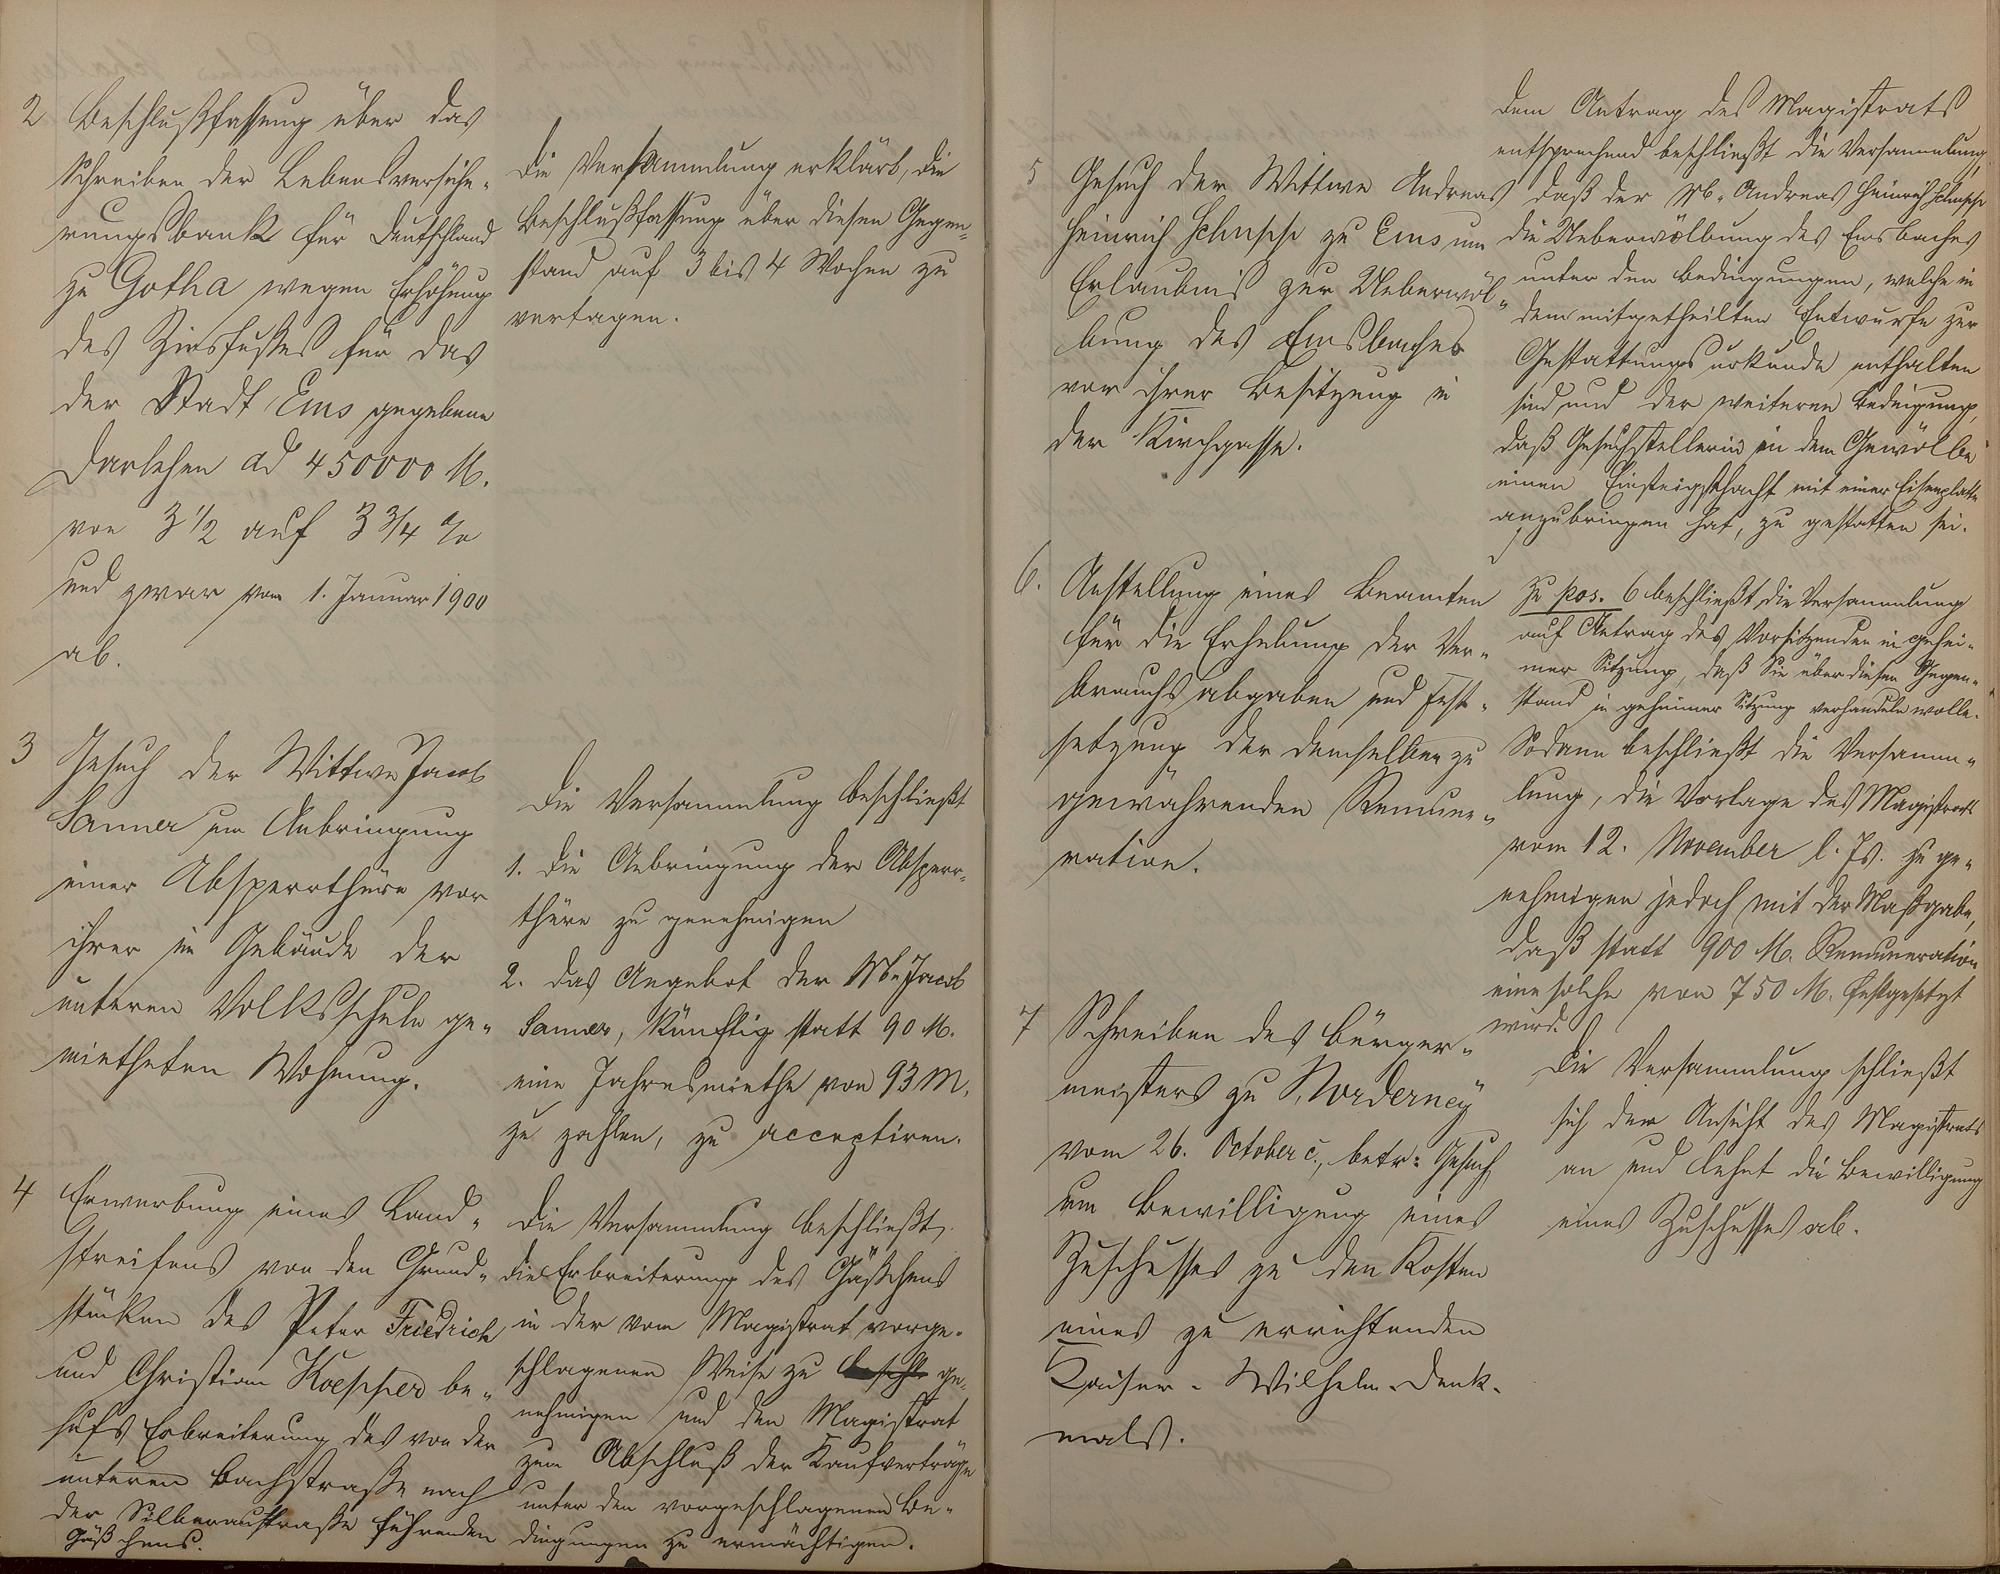 2 Beschlußfassung über das
Schreiben der Lebensversiche-
rungsbank für Deutschland
zu Gotha wegen Erhöhung
des Zinsfußes für das
der Stadt Ems gegebene
Darlehen ad 450000 M.
von 3 1/2 auf 3 3/4 %
und zwar vom 1. Januar 1900
ab.
Die Versammlung erklärt, die
Beschlußfassung über diesen Gegen-
stand auf 3 bis 4 Wochen zu
vertagen.
3 Gesuch der Wittwe Jacob
Sanner um Anbringung
einer Absperrthüre vor
ihrer im Gebäude der
unteren Volksschule ge-
mietheten Wohnung.
Die Versammlung beschließt
1. die Anbringung der Absperr-
thüre zu genehmigen
2. das Angebot der Ww. Jacob
Sanner, künftig statt 90 M.
eine Jahresmiethe von 93 M.
zu zahlen, zu acceptiren.
4 Erwerbung eines Land-
streifens von den Grund-
stücken des Peter Friedrich
und Christian Koepper be-
hufs Erbreiterung des von der
unteren Bachstraße nach
der Silberaustraße führenden
Gäßchens.
Die Versammlung beschließt,
die Erbreiterung des Gäßchens
in der vom Magistrat vorge-
schlagenen Weise zu ge-
nehmigen und den Magistrat
zum Abschluß der Kaufverträge
unter den vorgeschlagenen Be-
dingungen zu ermächtigen.
5 Gesuch der Wittwe Andreas
Heinrich Schupp zu Ems um
Erlaubnis zur Ueberwöl-
bung des Emsbaches
vor ihrer Besitzung in
der Kirchgasse.
Dem Antrag des Magistrats
entsprechend beschließt die Versammlung,
daß der Ww. Andreas Heinrich Schupp
die Ueberwölbung des Emsbaches
unter den Bedingungen, welche in
dem mitgetheilten Entwurfe zur
Gestattungsurkunde enthalten
sind und der weiteren Bedingung,
daß Gesuchstellerin in dem Gewölbe
einen Einsteigschacht mit einer Eisenplatte
anzubringen hat, zu gestatten sei.
6. Anstellung eines Beamten
für die Erhebung der Ver-
brauchsabgaben und Fest-
setzung der demselben zu
gewährenden Remune-
ration.
Zu pos. 6 beschließt die Versammlung
auf Antrag des Vorsitzenden in gehei-
mer Sitzung, daß Sie über diesen Gegen-
stand in geheimer Sitzung verhandeln wolle.
Sodann beschließt die Versamm-
lung, die Vorlage des Magistrats
vom 12. November l. Js. zu ge-
nehmigen jedoch mit der Maßgabe,
daß statt 900 M. Remuneration
eine solche von 750 M. festgesetzt
wird.
7 Schreiben des Bürger-
meisters zu Norderney
vom 26. October c., betr: Gesuch
um Bewilligung eines
Zuschusses zu den Kosten
eines zu errichtenden
Kaiser-Wilhelm-Denk-
mals.
Die Versammlung schließt
sich der Ansicht des Magistrats
an und lehnt die Bewilligung
eines Zuschusses ab.